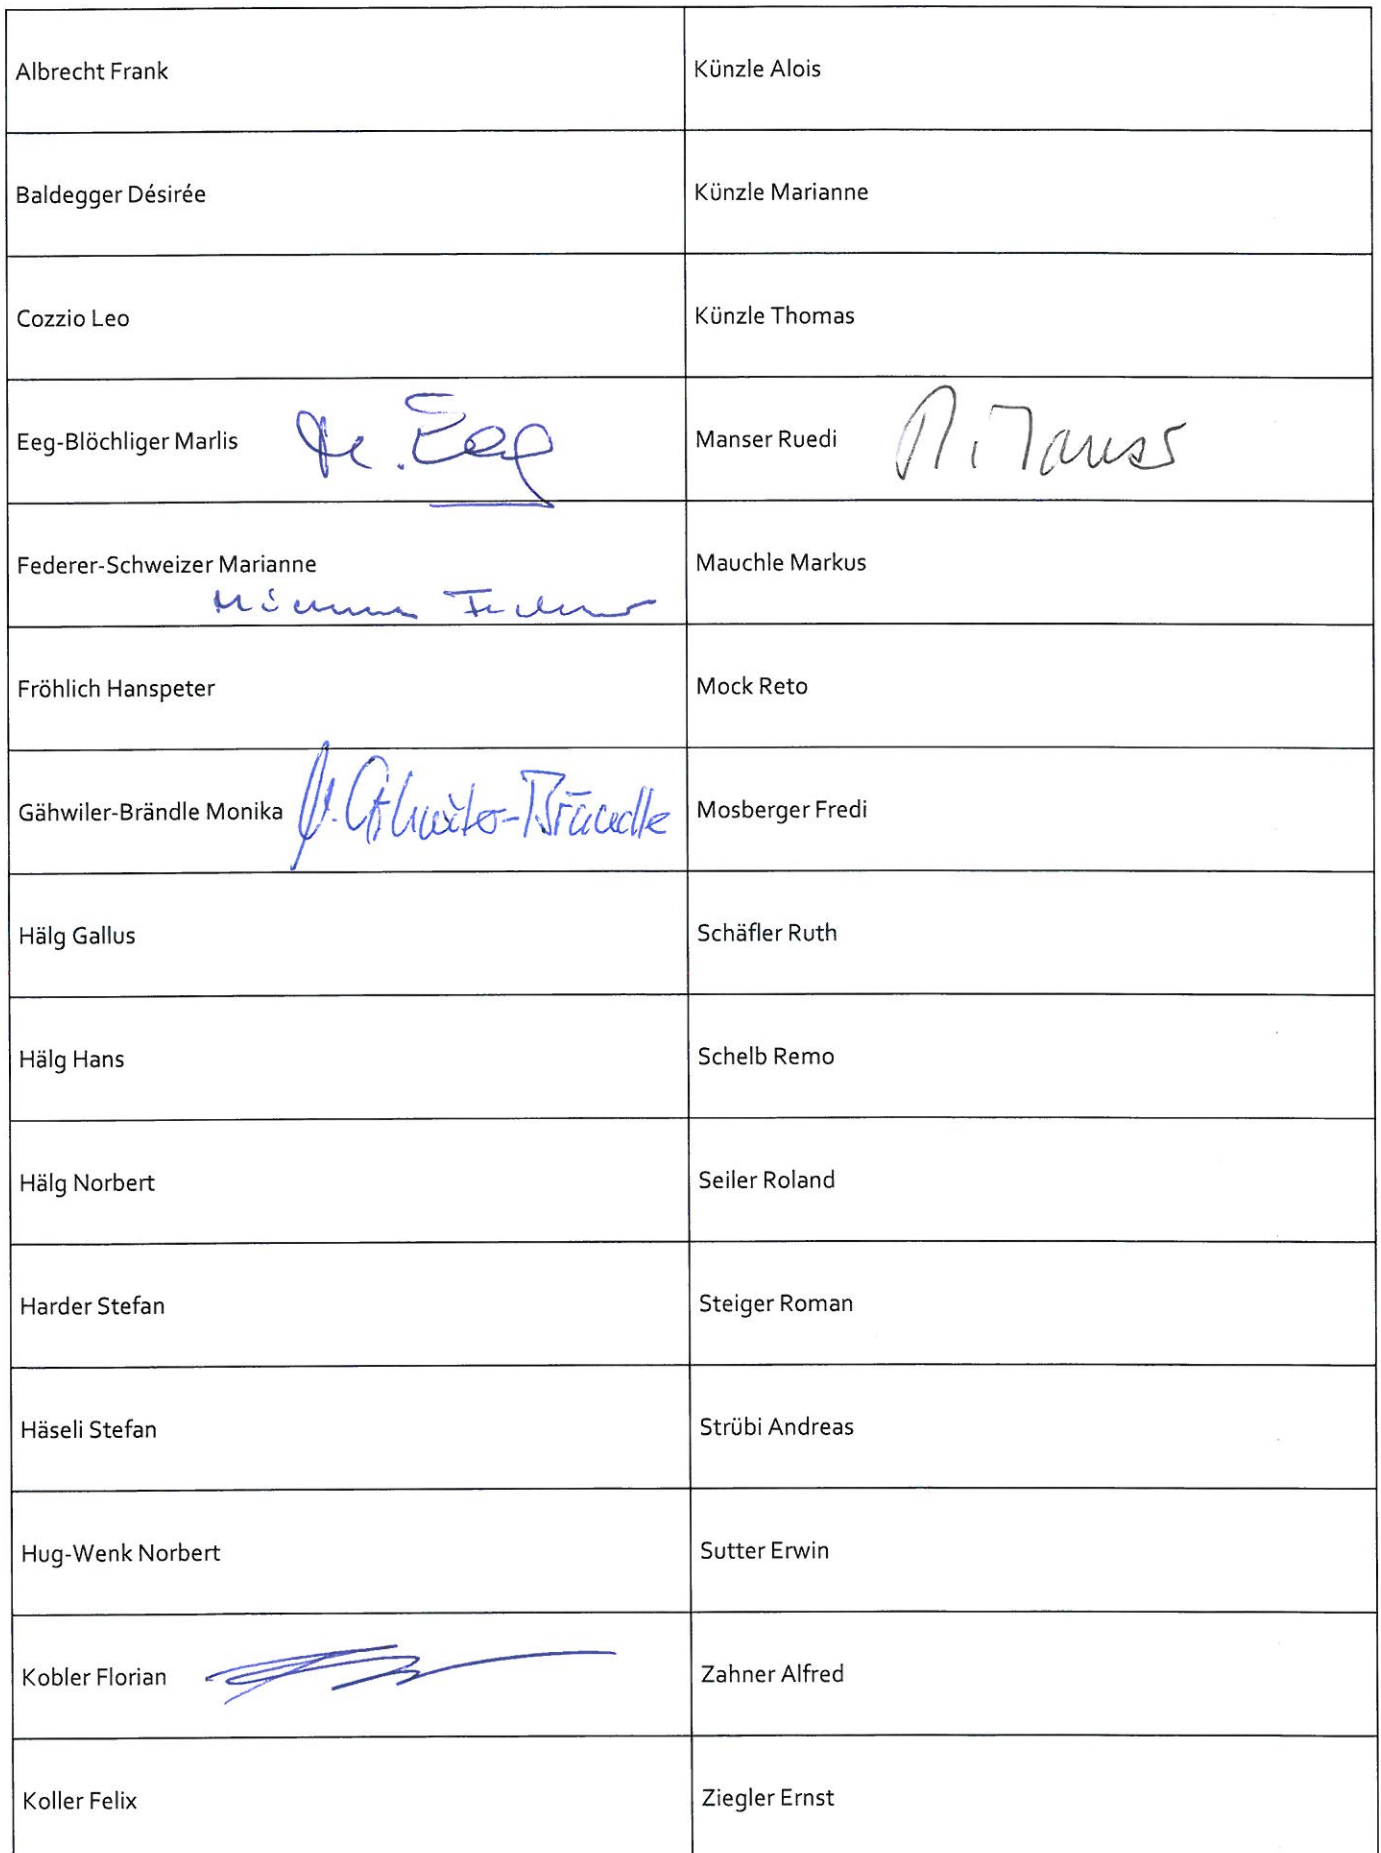 Albrecht Frank
Künzle Alois
Baldegger Désirée
Künzle Marianne
Cozzio Leo
Künzle Thomas
Eeg-Blöchliger Marlis M. Eeg
Manser Ruedi R. Manser
Federer-Schweizer Marianne
Marianne Federer
Mauchle Markus
Fröhlich Hanspeter
Mock Reto
Gähwiler-Brändle Monika M. Gähwiler-Brändle
Mosberger Fredi
Hälg Gallus
Schäfler Ruth
Hälg Hans
Schelb Remo
Hälg Norbert
Seiler Roland
Harder Stefan
Steiger Roman
Häseli Stefan
Strübi Andreas
Hug-Wenk Norbert
Sutter Erwin
Kobler Florian
Zahner Alfred
Koller Felix
Ziegler Ernst